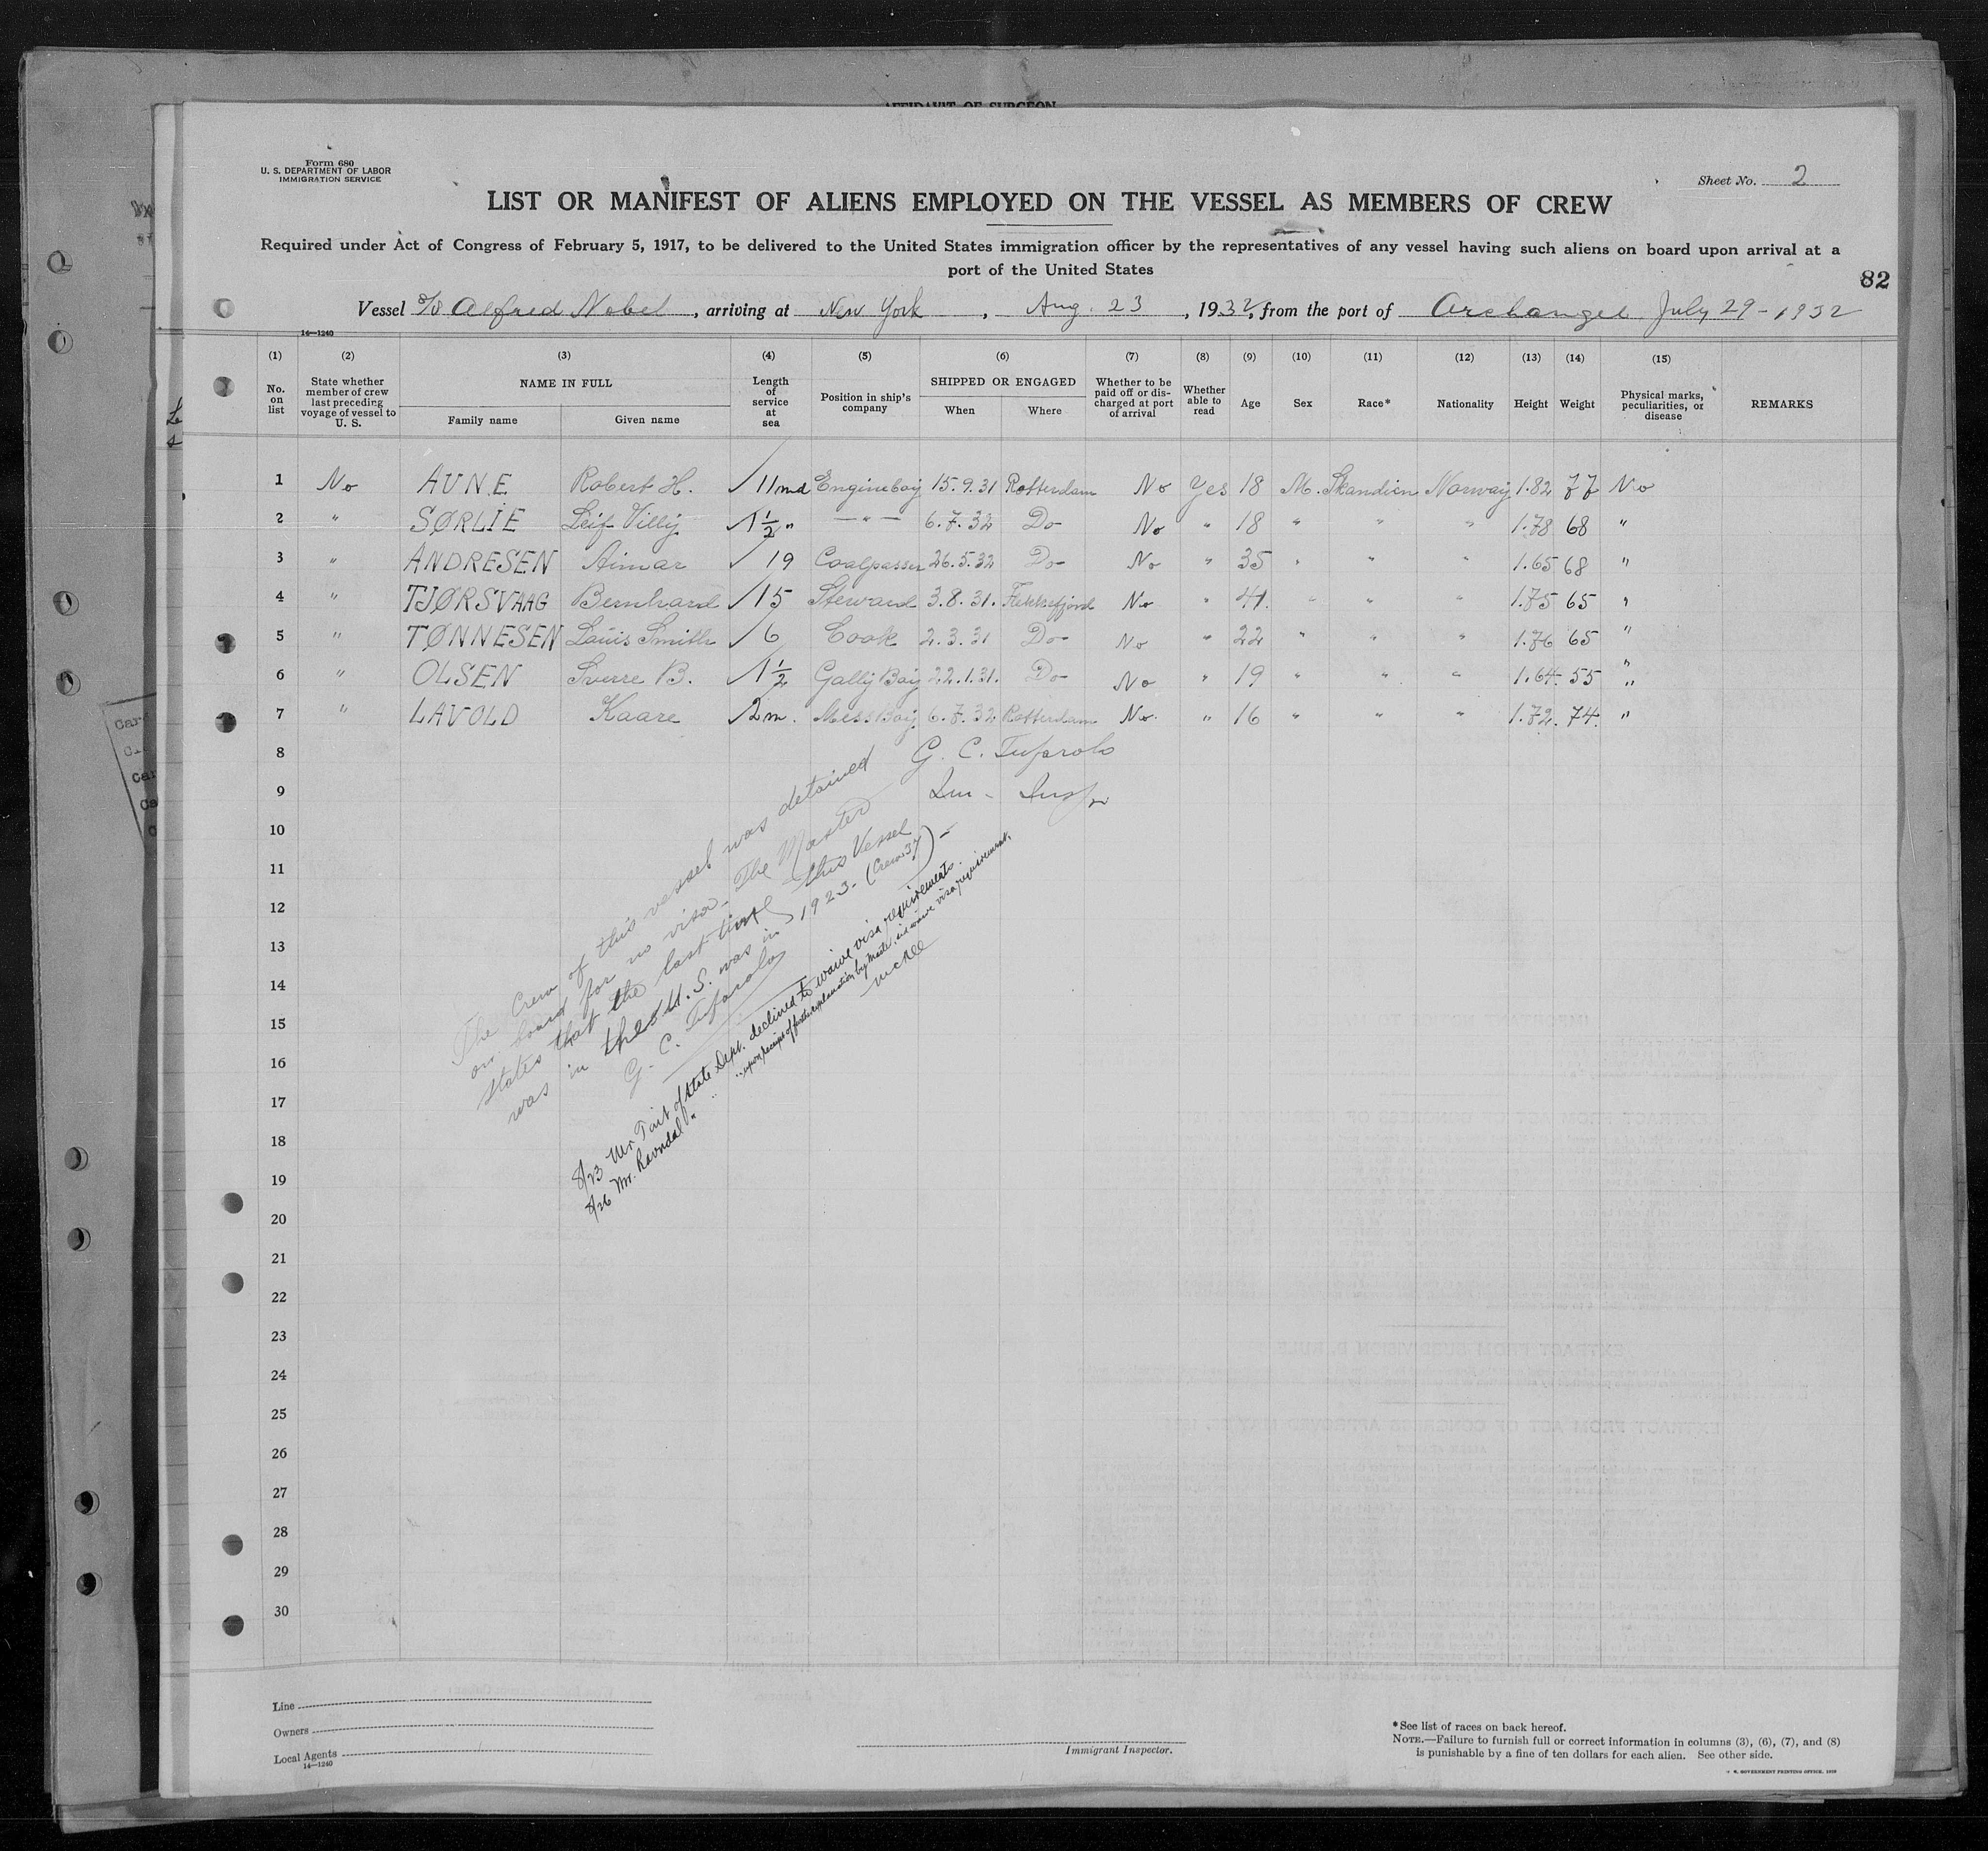 AFFIDAVIT OF SURGEON
Form 680
U. S. DEPARTMENT OF LABOR
IMMIGRATION SERVICE
Sheet No. 2
LIST OR MANIFEST OF ALIENS EMPLOYED ON THE VESSEL AS MEMBERS OF CREW
Required under Act of Congress of February 5, 1917, to be delivered to the United States immigration officer by the representatives of any vessel having such aliens on board upon arrival at a
port of the United States
82
Vessel S/S Alfred Nobel, arriving at New York, Aug. 23, 1932, from the port of Archangel July 29 - 1932
14—1240
(1) (2) (3) (4) (5) (6) (7) (8) (9) (10) (11) (12) (13) (14) (15)
No. on list State whether member of crew last preceding voyage of vessel to U. S. NAME IN FULL Family name Given name Length of service at sea Position in ship's company SHIPPED OR ENGAGED When Where Whether to be paid off or discharged at port of arrival Whether able to read Age Sex Race* Nationality Height Weight Physical marks, peculiarities, or disease REMARKS
1 No AUNE Robert H. 11 md Engineboy 15.9.31 Rotterdam No Yes 18 M. Skandien Norway 1.82 77 No
2 " SØRLIE Leif Villy 1 1/2 " — " — 6.7.32 Do No " 18 " " " 1.78 68 "
3 " ANDRESEN Aimar 19 Coalpasser 26.5.32 Do No " 35 " " " 1.65 68 "
4 " TJØRSVAAG Bernhard 15 Steward 3.8.31. Flekkefjord No " 41. " " " 1.75 65 "
5 " TØNNESEN Louis Smith 6 Cook 2.3.31 Do No " 22 " " " 1.76 65 "
6 " OLSEN Sverre B. 1 1/2 Gally Boy 22.1.31. Do No " 19 " " " 1.64. 55 "
7 " LAVOLD Kaare 2 m. Mess Boy 6.7.32 Rotterdam No. " 16 " " " 1.72. 74. "
8
9
10
11
12
13
14
15
16
17
18
19
20
21
22
23
24
25
26
27
28
29
30
G. C. Tufarolo
Im - Insp
The Crew of this vessel was detained
on board for no visa - The Master
states that the last time this Vessel
was in the U.S. was in 1923 - (Crew 37) -
G. C. Tufarolo
8/23 Mr. Tait of State Dept. declined to waive visa requirements.
8/26 Mr. Ravndal " " " upon receipt of further explanation by Master, did waive visa requirement.
McNee
Line
Owners
Local Agents
14—1240
Immigrant Inspector.
*See list of races on back hereof.
NOTE.—Failure to furnish full or correct information in columns (3), (6), (7), and (8)
is punishable by a fine of ten dollars for each alien. See other side.
U. S. GOVERNMENT PRINTING OFFICE